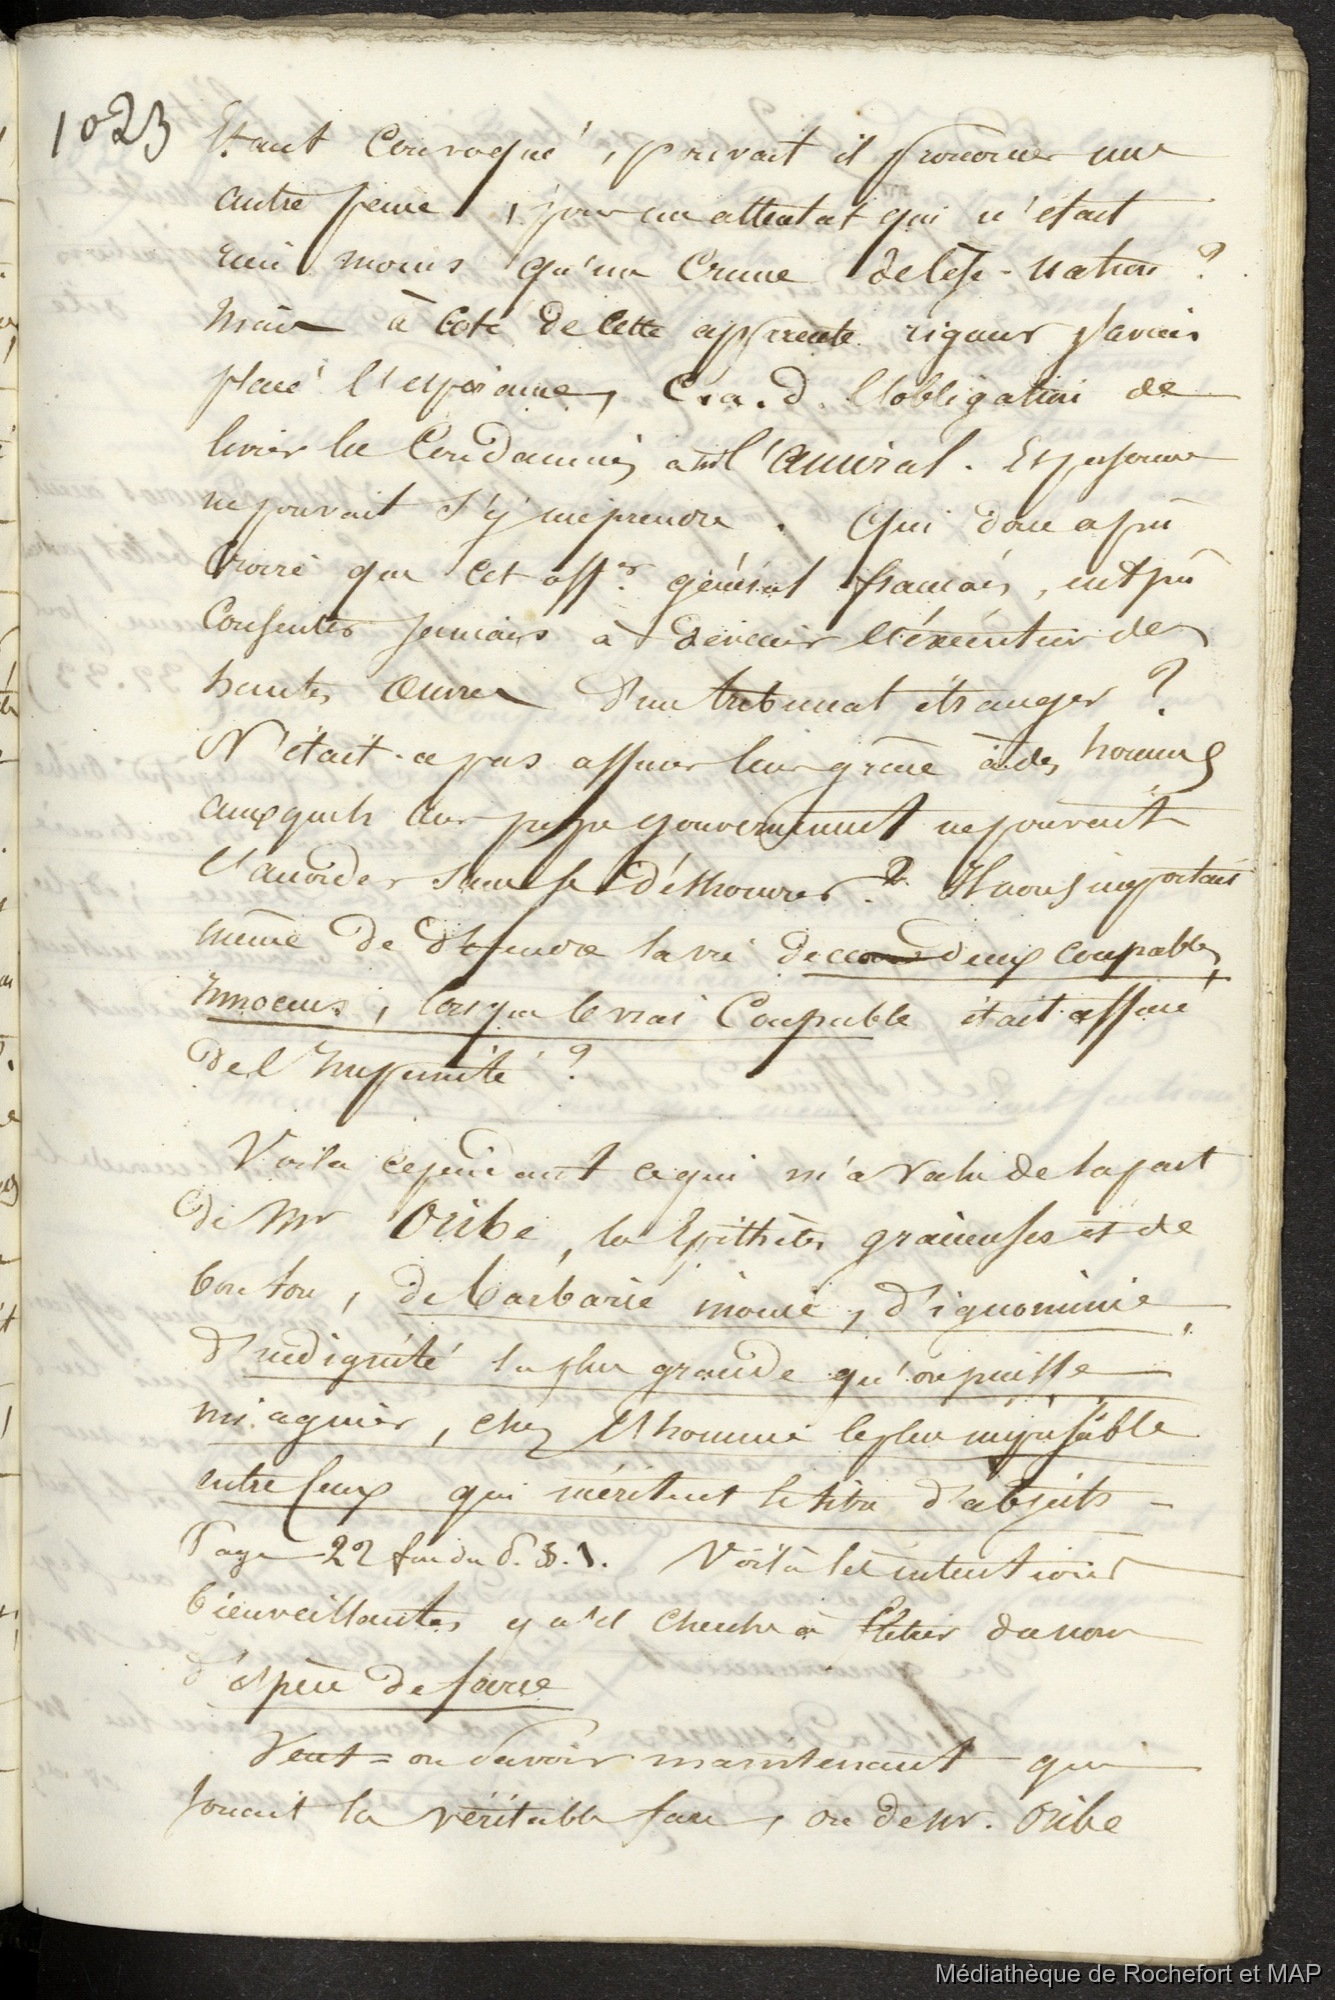 1023
Etant convoqué, pouvait il prononcer une
autre peine, pour un attentat qui n'etait
rien moins qu'un crime de lèse-nation ?
mais à coté de cette apparente rigeur j'avais
placé l'espérance, C.a.d. l'obligation de
livrer les condamnés à l'amiral. Et personne
ne pouvait s'y méprendre. Qui donc a pû
croire que cet offer. général français, eut pû
consentir jamais à devenir l'exécuteur des
hautes oeuvres d'un tribunal étranger ?
N'était-ce pas assurer leur grâce à des hommes
auxquels leur propre gouvernement ne pouvait
l'accorder sans se déshonorer ? Il nous importait
même de défendre la vie de deux coupables
innocens, lorsque le vrai coupable était assuré
de l'impunité ?
Voila cependant ce qui m'a valu de la part
de Mr Oribe, les épithètes gracieuses et de
bon ton, de barbarie inouie, d'ignominie,
d'indignité la plus grande qu'on puisse
imaginer, chez l'homme le plus méprisable
entre ceux qui méritent le titre d'abjects -
Page 22 Voilà les intentions
bienveillantes qu'il cherche à flétrir du nom
d'espèce de farce
Veut=on savoir maintenant qui
jouait la véritable farce, ou de Mr. Oribe
Médiathèque de Rochefort et MAP